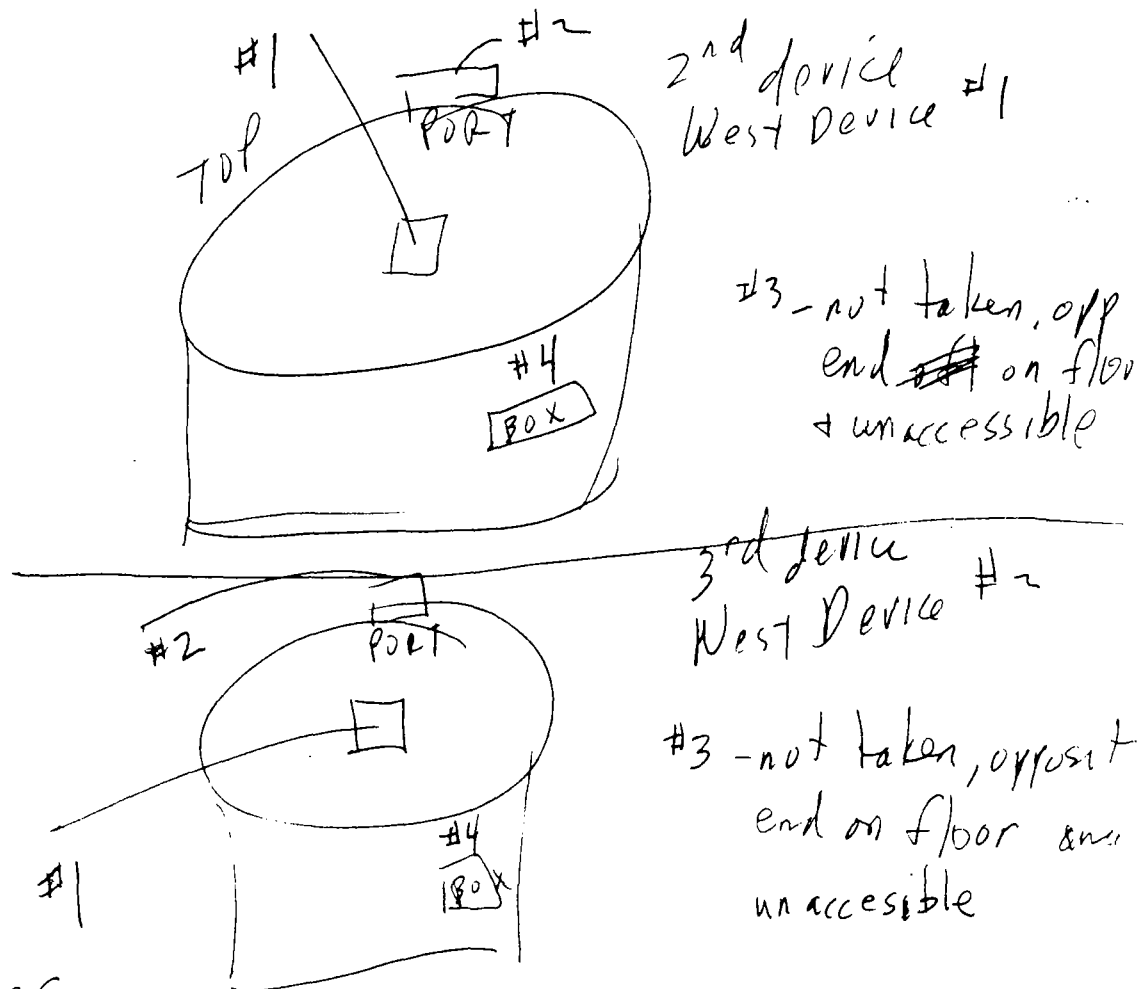 #1
#2
TOP
PORT
2nd device
West Device #1
#3 - not taken, opp
end on floo
+ unaccessible
#4
BOX
3rd device
West Device #2
#2
PORT
#3 - not taken, opposit
end on floor
unaccesible
#4
BOX
#1